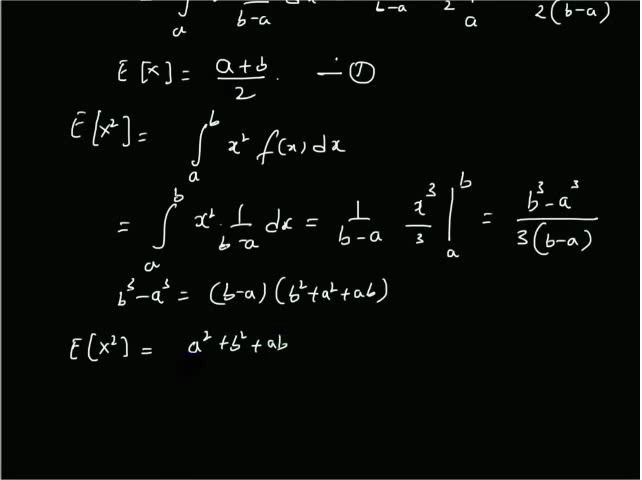 ∫ₐ b-a b-a 2 a 2(b-a)
E[x] = (a+b)/2 . — ①
E[x²] = ∫ₐᵇ x² f(x) dx
= ∫ₐᵇ x² · 1/(b-a) dx = 1/(b-a) x³/3 |ₐᵇ = (b³-a³)/(3(b-a))
b³-a³ = (b-a)(b²+a²+ab)
E[x²] = a²+b²+ab